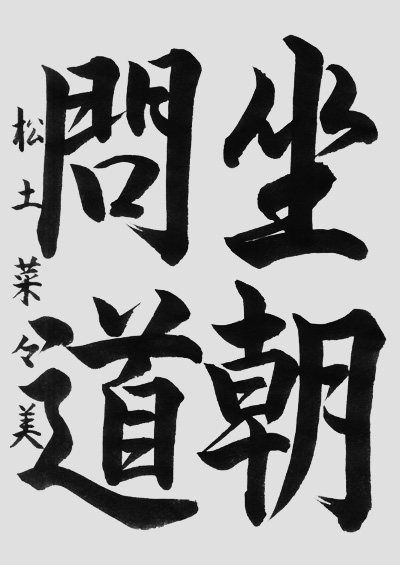 坐朝
問道
松土菜々美